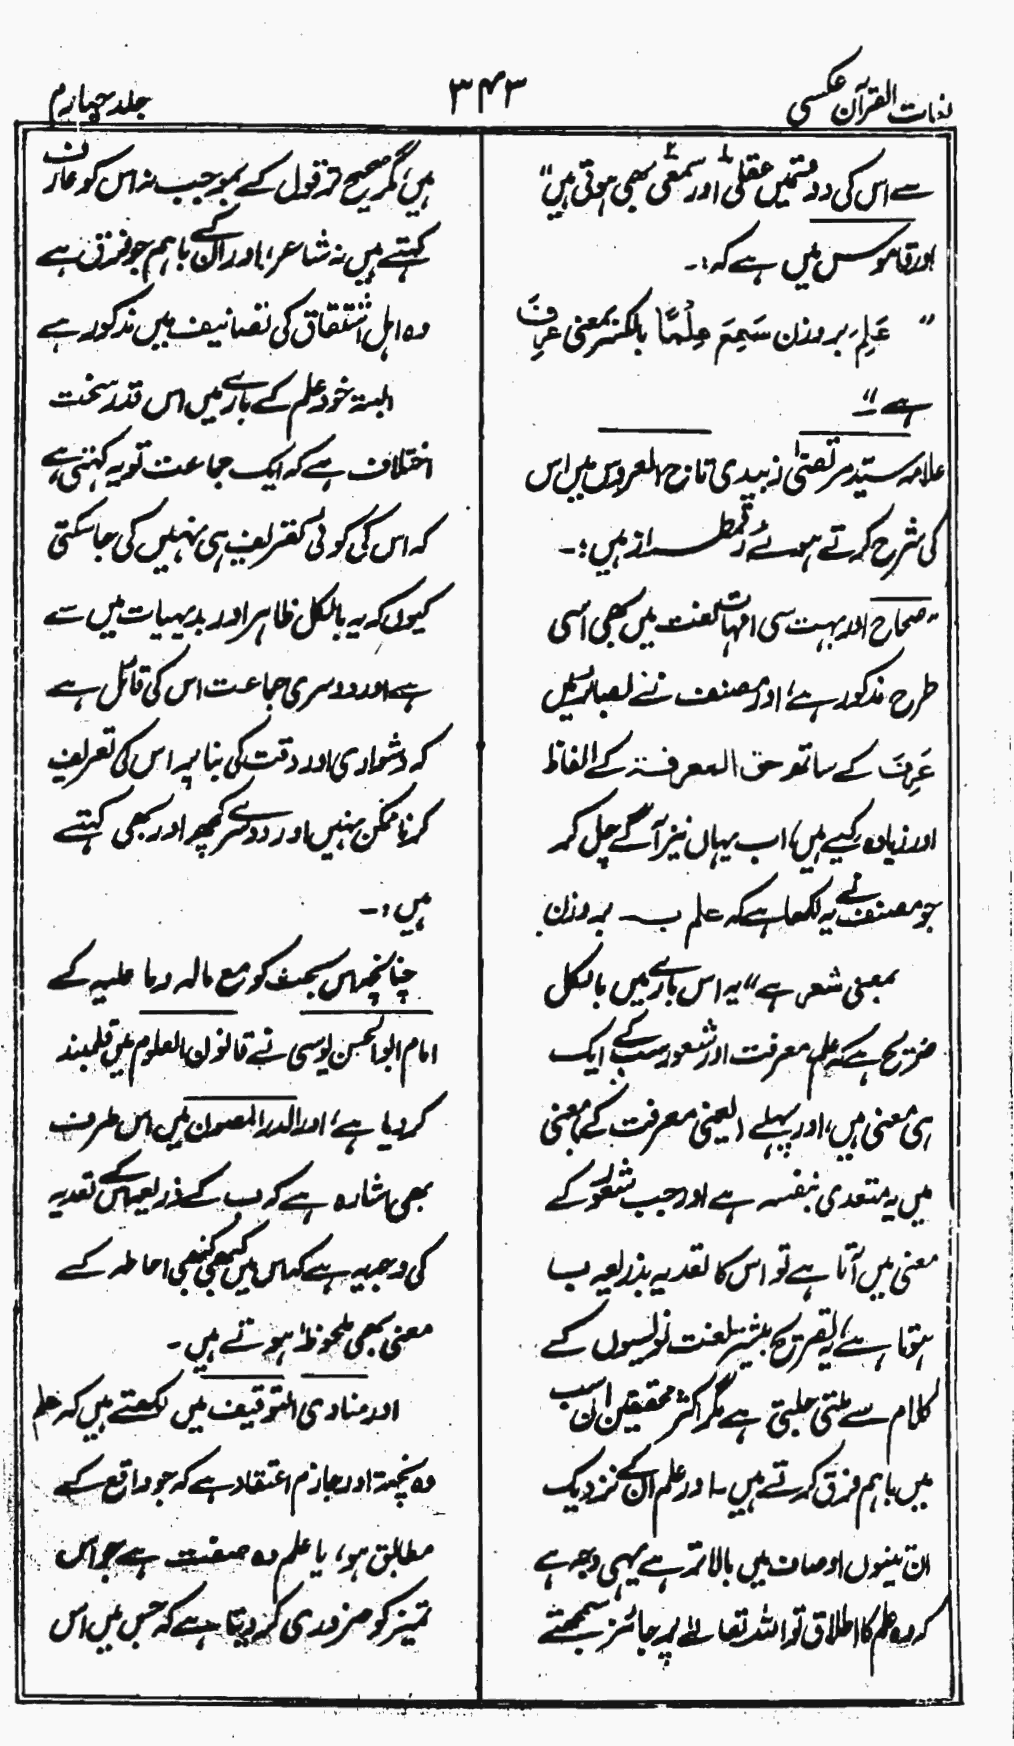 لغات القرآن عکسی
۳۴۳
جلد چہارم
سے اس کی دو قسمیں عقلی اور سمعی بھی ہوتی ہیں"
اور قاموس میں ہے کہ:۔
" عَلِمَ، بروزن سَمِعَ عِلْمًا بالکسر بمعنی عَرِفَ
ہے "
علامہ سید مرتضیٰ زبیدی تاج العروس میں اس
کی شرح کرتے ہوئے رقمطراز ہیں:۔
"صحاح اور بہت سی امہات لغت میں بھی اسی
طرح مذکور ہے، اور مصنف نے بصائر میں
عَرِفَ کے ساتھ حق المعرفۃ کے الفاظ
اور زیادہ کیے ہیں، اب یہاں نیز آگے چل کر
جو مصنف نے یہ لکھا ہے کہ علم بہ بروزن
بمعنی شعر ہے" یہ اس بارے میں بالکل
صریح ہے کہ علم معرفت اور شعور سب کے ایک
ہی معنی ہیں، اور پہلے (یعنی معرفت کے) معنی
میں یہ متعدی بنفسہ ہے اور جب شعور کے
معنی میں آتا ہے تو اس کا تعدیہ بذریعہ ب
ہوتا ہے، یہ تصریح بیشتر لغت نویسوں کے
کلام سے ملتی جلتی ہے مگر اکثر محققین ان سب
میں باہم فرق کرتے ہیں ۔ اور علم ان کے نزدیک
ان تینوں اوصاف میں بالاتر ہے یہی وجہ ہے
کہ وہ علم کا اطلاق تو اللہ تعالےٰ پر جائز سمجھتے
ہیں، مگر صحیح تر قول کے بموجب نہ اس کو عارف
کہتے ہیں نہ شاعر، اور ان کے باہم جو فرق ہے
وہ اہل اشتقاق کی تصانیف میں مذکور ہے
البتہ خود علم کے بارے میں اس قدر سخت
اختلاف ہے کہ ایک جماعت تو یہ کہتی ہے
کہ اس کی کوئی تعریف ہی نہیں کی جاسکتی
کیوں کہ یہ بالکل ظاہر اور بدیہیات میں سے
ہے اور دوسری جماعت اس کی قائل ہے
کہ دشواری اور دقت کی بنا پر اس کی تعریف
کرنا ممکن نہیں اور دوسرے کچھ اور بھی کہتے
ہیں:۔
چنانچہ اس بحث کو مع مالہ وما علیہ کے
امام ابو الحسن یوسی نے قانون العلوم میں قلمبند
کردیا ہے، اور الدر المصون میں اس طرف
بھی اشارہ ہے کہ ب کے ذریعہ اس کے تعدیہ
کی وجہ یہ ہے کہ اس میں کبھی کبھی احاطہ کے
معنی بھی ملحوظ ہوتے ہیں ۔
اور مناوی التوقیف میں لکھتے ہیں کہ علم
وہ پختہ اور جازم اعتقاد ہے کہ جو واقع کے
مطابق ہو، یا علم وہ صفت ہے جو اس
تمیز کو ضروری کر دیتا ہے کہ جس میں اس